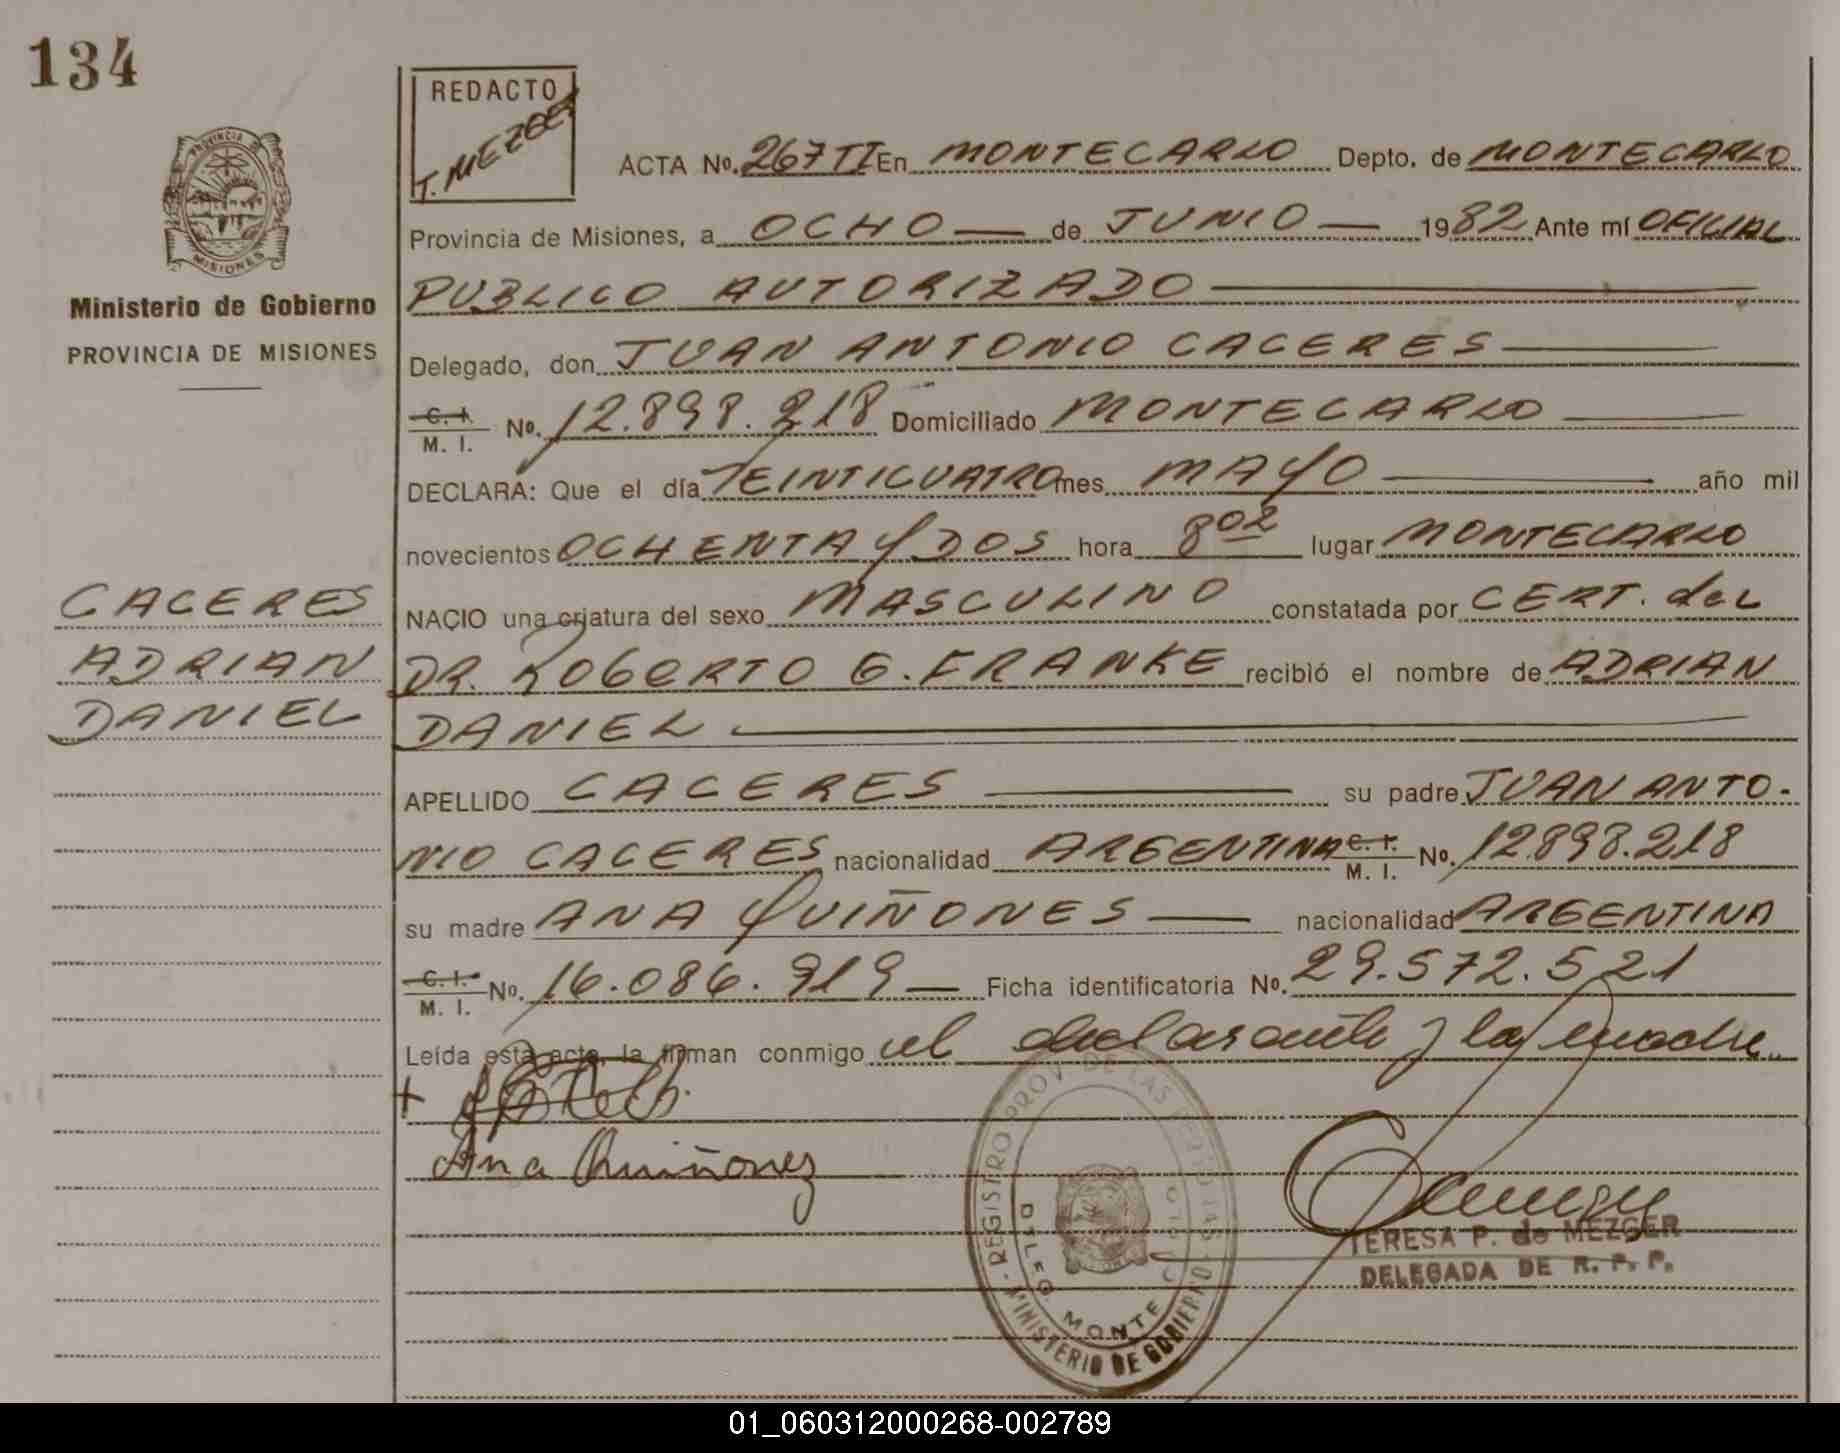 134
REDACTO
T. MEZGER
PROVINCIA
MISIONES
Ministerio de Gobierno
PROVINCIA DE MISIONES
CACERES
ADRIAN
DANIEL
ACTA No. 267 TI En MONTECARLO Depto. de MONTECARLO
Provincia de Misiones, a OCHO — de JUNIO — 1982 Ante mí OFICIAL
PUBLICO AUTORIZADO
Delegado, don JUAN ANTONIO CACERES
C. I.
M. I. No. 12.898.218 Domiciliado MONTECARLO
DECLARA: Que el día VEINTICUATRO mes MAYO año mil
novecientos OCHENTA Y DOS hora 8 02 lugar MONTECARLO
NACIO una criatura del sexo MASCULINO constatada por CERT. del
DR. ROBERTO G. FRANKE recibió el nombre de ADRIAN
DANIEL
APELLIDO CACERES su padre JUAN ANTO-
NIO CACERES nacionalidad ARGENTINA C. I. M. I. No. 12.898.218
su madre ANA QUIÑONES — nacionalidad ARGENTINA
C. I.
M. I. No. 16.086.919 — Ficha identificatoria No. 29.572.521
Leída esta acta, la firman conmigo el declarante y la madre
Ana Quiñonez
REGISTRO PROV. DE LAS PERSONAS
MINISTERIO DE GOBIERNO
DELEG. MONTE
TERESA P. de MEZGER
DELEGADA DE R. P. P.
01_060312000268-002789